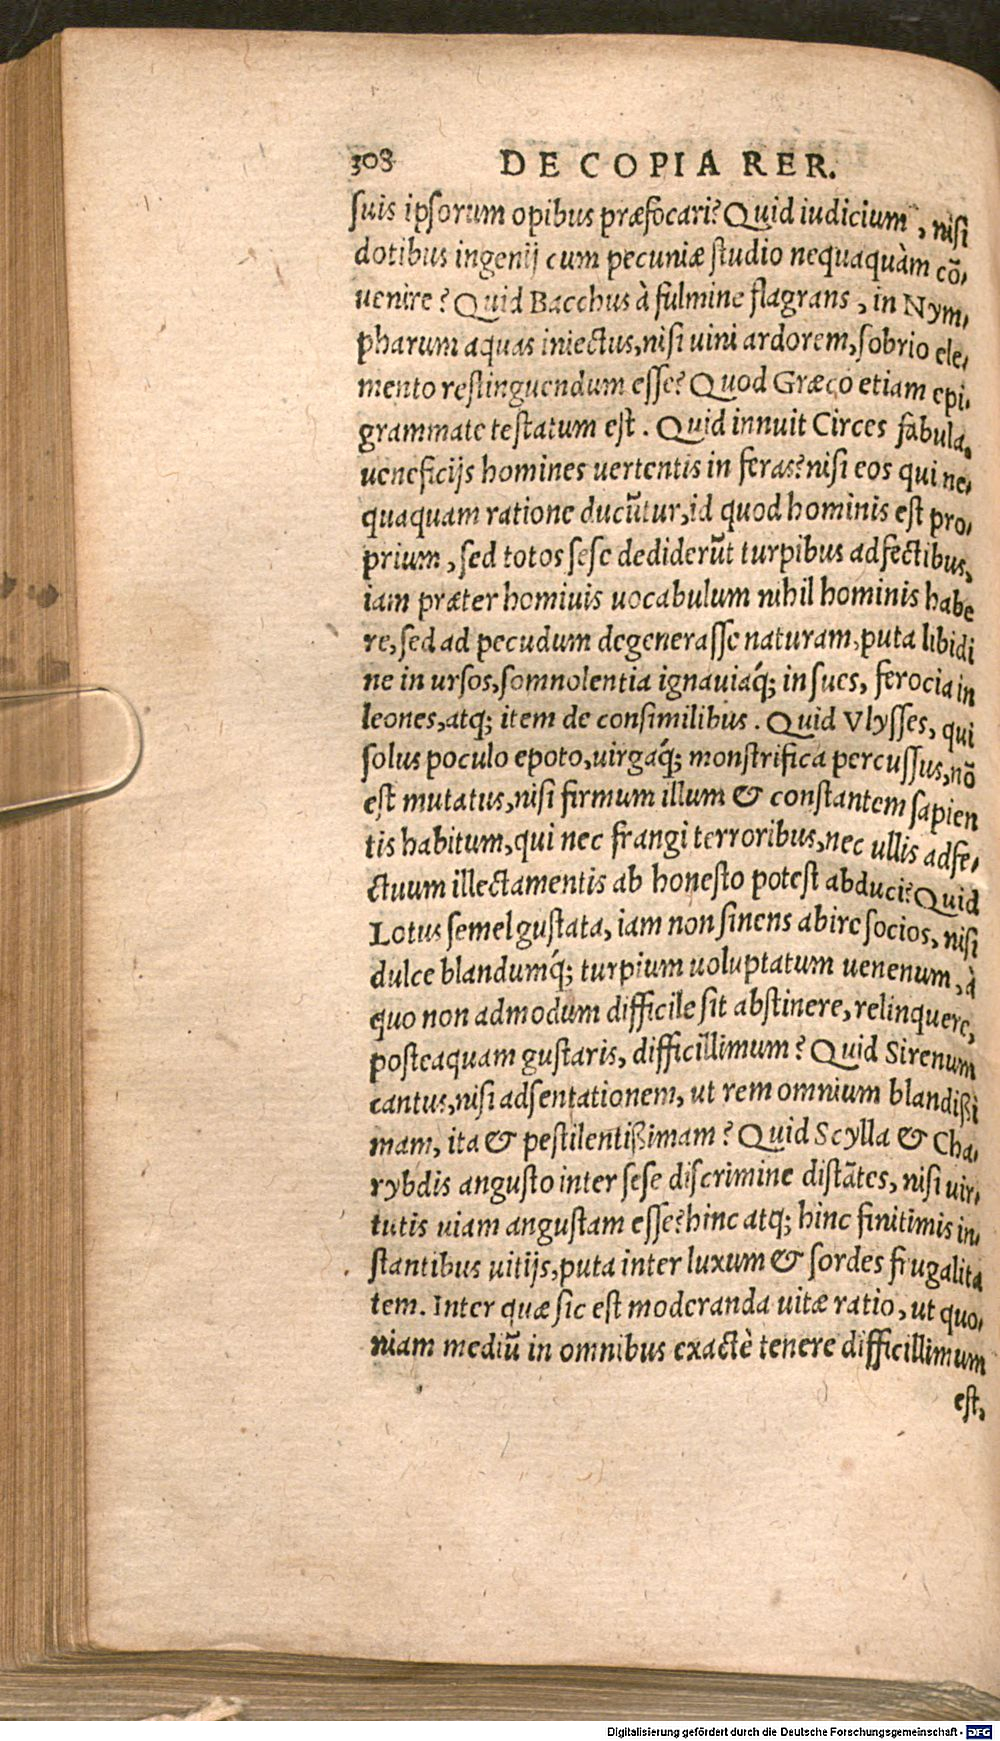 308 DE COPIA RER.
suis ipsorum opibus præfocari? Quid iudicium, nisi
dotibus ingenij cum pecuniæ studio nequaquàm cō-
uenire? Quid Bacchus à fulmine flagrans, in Nym-
pharum aquas iniectus, nisi uini ardorem, sobrio ele-
mento restinguendum esse? Quod Græco etiam epi-
grammate testatum est. Quid innuit Circes fabula,
ueneficijs homines uertentis in feras? nisi eos qui ne-
quaquam ratione ducūtur, id quod hominis est pro-
prium, sed totos sese dediderūt turpibus adfectibus,
iam præter homiuis uocabulum nihil hominis habe
re, sed ad pecudum degenerasse naturam, puta libidi
ne in ursos, somnolentia ignauiáq; in sues, ferocia in
leones, atq; item de consimilibus. Quid Vlysses, qui
solus poculo epoto, uirgáq; monstrifica percussus, nō
est mutatus, nisi firmum illum & constantem sapien
tis habitum, qui nec frangi terroribus, nec ullis adfe-
ctuum illectamentis ab honesto potest abduci? Quid
Lotus semel gustata, iam non sinens abire socios, nisi
dulce blandumq́; turpium uoluptatum uenenum, à
quo non admodum difficile sit abstinere, relinquere,
posteaquam gustaris, difficillimum? Quid Sirenum
cantus, nisi adsentationem, ut rem omnium blandißi
mam, ita & pestilentißimam? Quid Scylla & Cha-
rybdis angusto inter sese discrimine distātes, nisi uir-
tutis uiam angustam esse? hinc atq; hinc finitimis in-
stantibus uitijs, puta inter luxum & sordes frugalita
tem. Inter quæ sic est moderanda uitæ ratio, ut quo-
niam mediū in omnibus exactè tenere difficillimum
est,
Digitalisierung gefördert durch die Deutsche Forschungsgemeinschaft - DFG